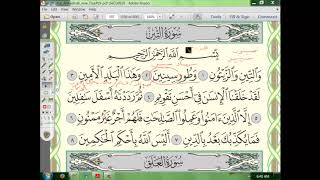 سُورَةُ التِّينِ
بِسْمِ اللَّهِ الرَّحْمَٰنِ الرَّحِيمِ
وَالتِّينِ وَالزَّيْتُونِ ١ وَطُورِ سِينِينَ ٢ وَهَٰذَا الْبَلَدِ الْأَمِينِ ٣
لَقَدْ خَلَقْنَا الْإِنسَانَ فِي أَحْسَنِ تَقْوِيمٍ ٤ ثُمَّ رَدَدْنَاهُ أَسْفَلَ سَافِلِينَ
٥ إِلَّا الَّذِينَ آمَنُوا وَعَمِلُوا الصَّالِحَاتِ فَلَهُمْ أَجْرٌ غَيْرُ مَمْنُونٍ ٦
فَمَا يُكَذِّبُكَ بَعْدُ بِالدِّينِ ٧ أَلَيْسَ اللَّهُ بِأَحْكَمِ الْحَاكِمِينَ ٨
سُورَةُ الْعَلَقِ